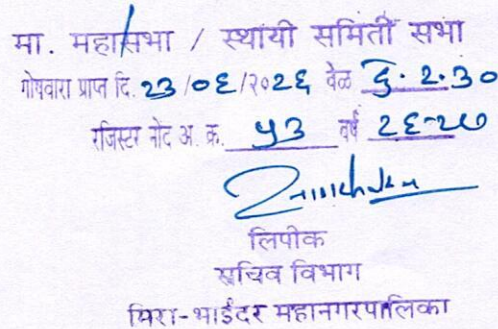 मा. महासभा / स्थायी समिती सभा
गोषवारा प्राप्त दि. २३/०६/२०२६ वेळ दु. २.३०
रजिस्टर नोंद अ. क्र. ५३ वर्ष २६-२७
लिपीक
सचिव विभाग
मिरा-भाईंदर महानगरपालिका